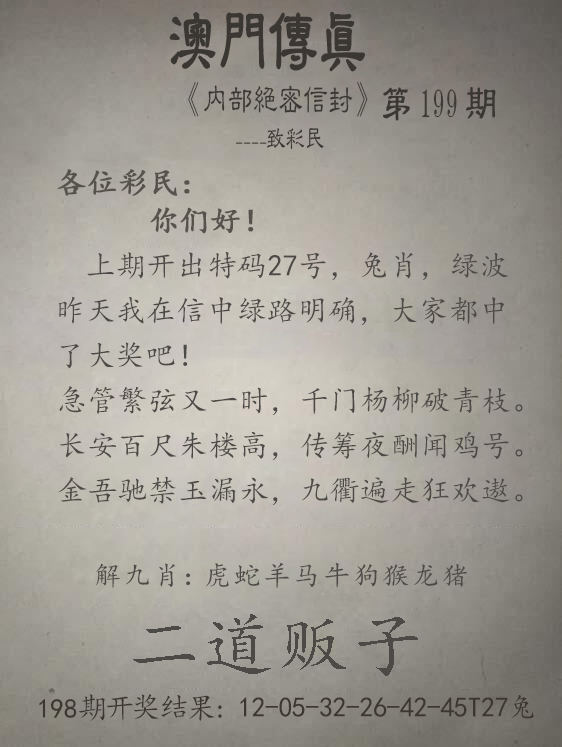 澳門傳真
《内部絕密信封》第199期
----致彩民
各位彩民：
你们好！
上期开出特码27号，兔肖，绿波
昨天我在信中绿路明确，大家都中
了大奖吧！
急管繁弦又一时，千门杨柳破青枝。
长安百尺朱楼高，传筹夜酬闻鸡号。
金吾驰禁玉漏永，九衢遍走狂欢遨。
解九肖：虎蛇羊马牛狗猴龙猪
二道贩子
198期开奖结果：12-05-32-26-42-45T27兔